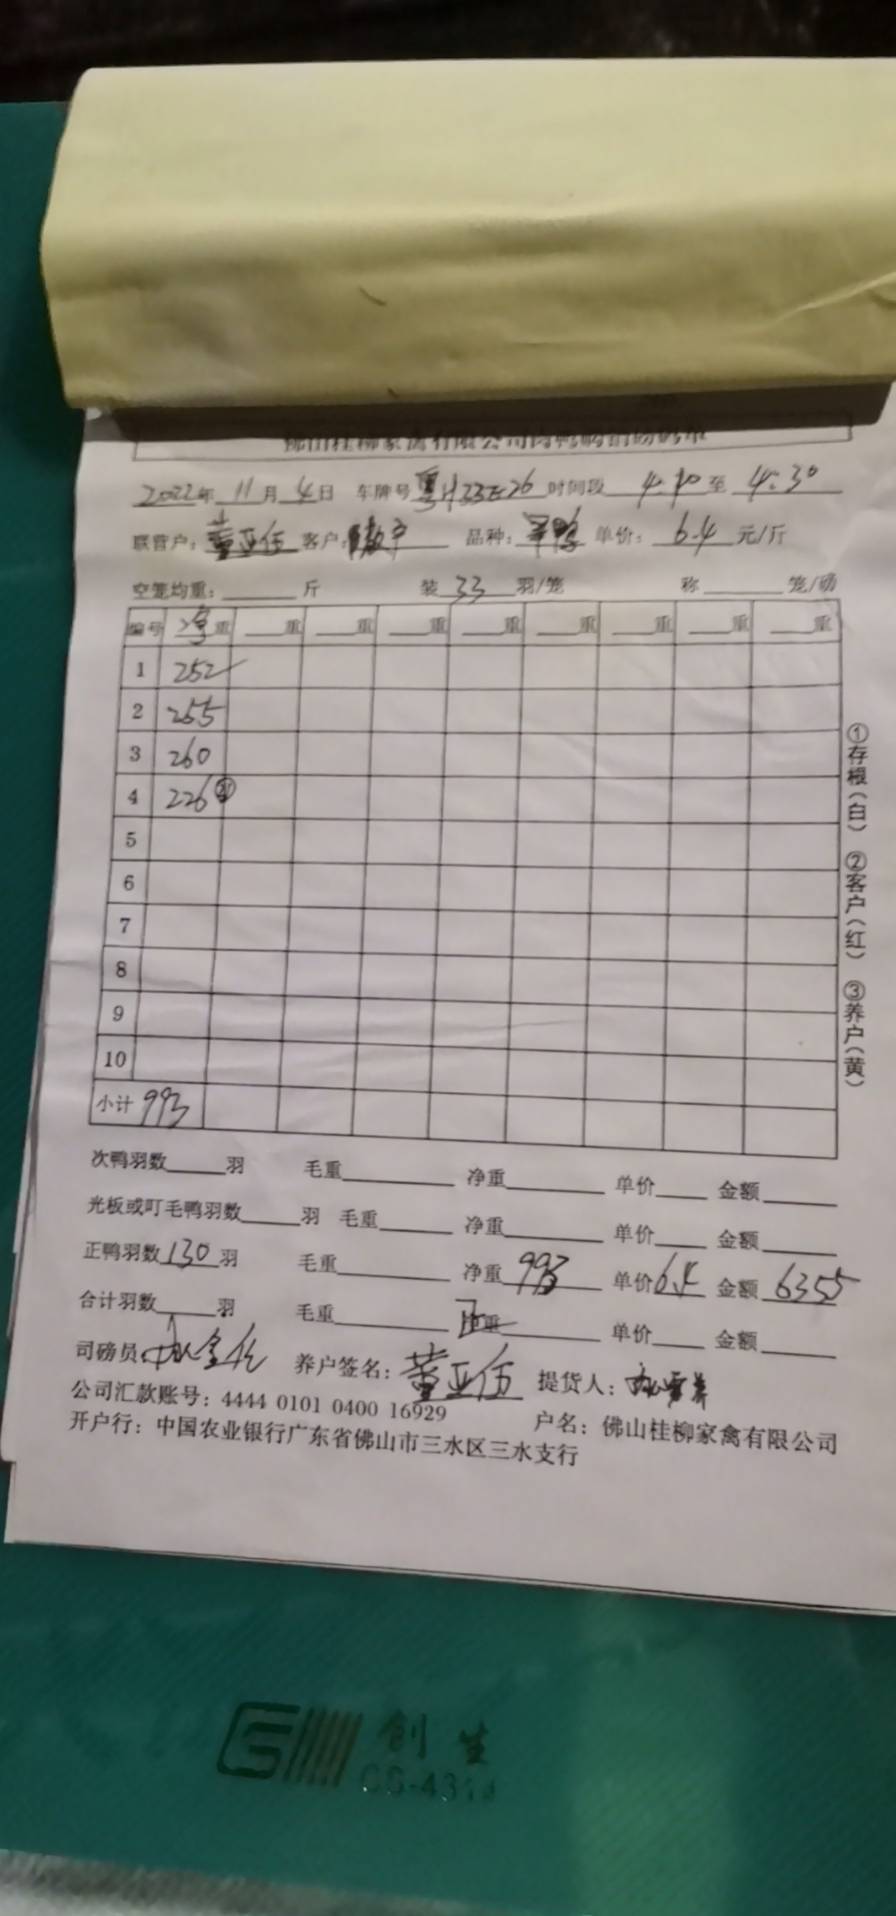 佛山桂柳家禽有限公司肉鸭购销磅码单
2022年 11月 4日 车牌号 时间段 至 4:30
联营户: 董亚伍 客户: 品种: 单价: 6.4 元/斤
空笼均重: 斤 装 33 羽/笼 称 笼/磅
编号 净重 重 重 重 重 重 重 重 重
1 252
2 255
3 260
4 226
5
6
7
8
9
10
小计 993
①存根(白) ②客户(红) ③养户(黄)
次鸭羽数 羽 毛重 净重 单价 金额
光板或叮毛鸭羽数 羽 毛重 净重 单价 金额
正鸭羽数 130 羽 毛重 净重 993 单价 6.4 金额 6355
合计羽数 羽 毛重 净重 单价 金额
司磅员: 养户签名: 董亚伍 提货人:
公司汇款账号: 4444 0101 0400 16929 户名: 佛山桂柳家禽有限公司
开户行: 中国农业银行广东省佛山市三水区三水支行
创生